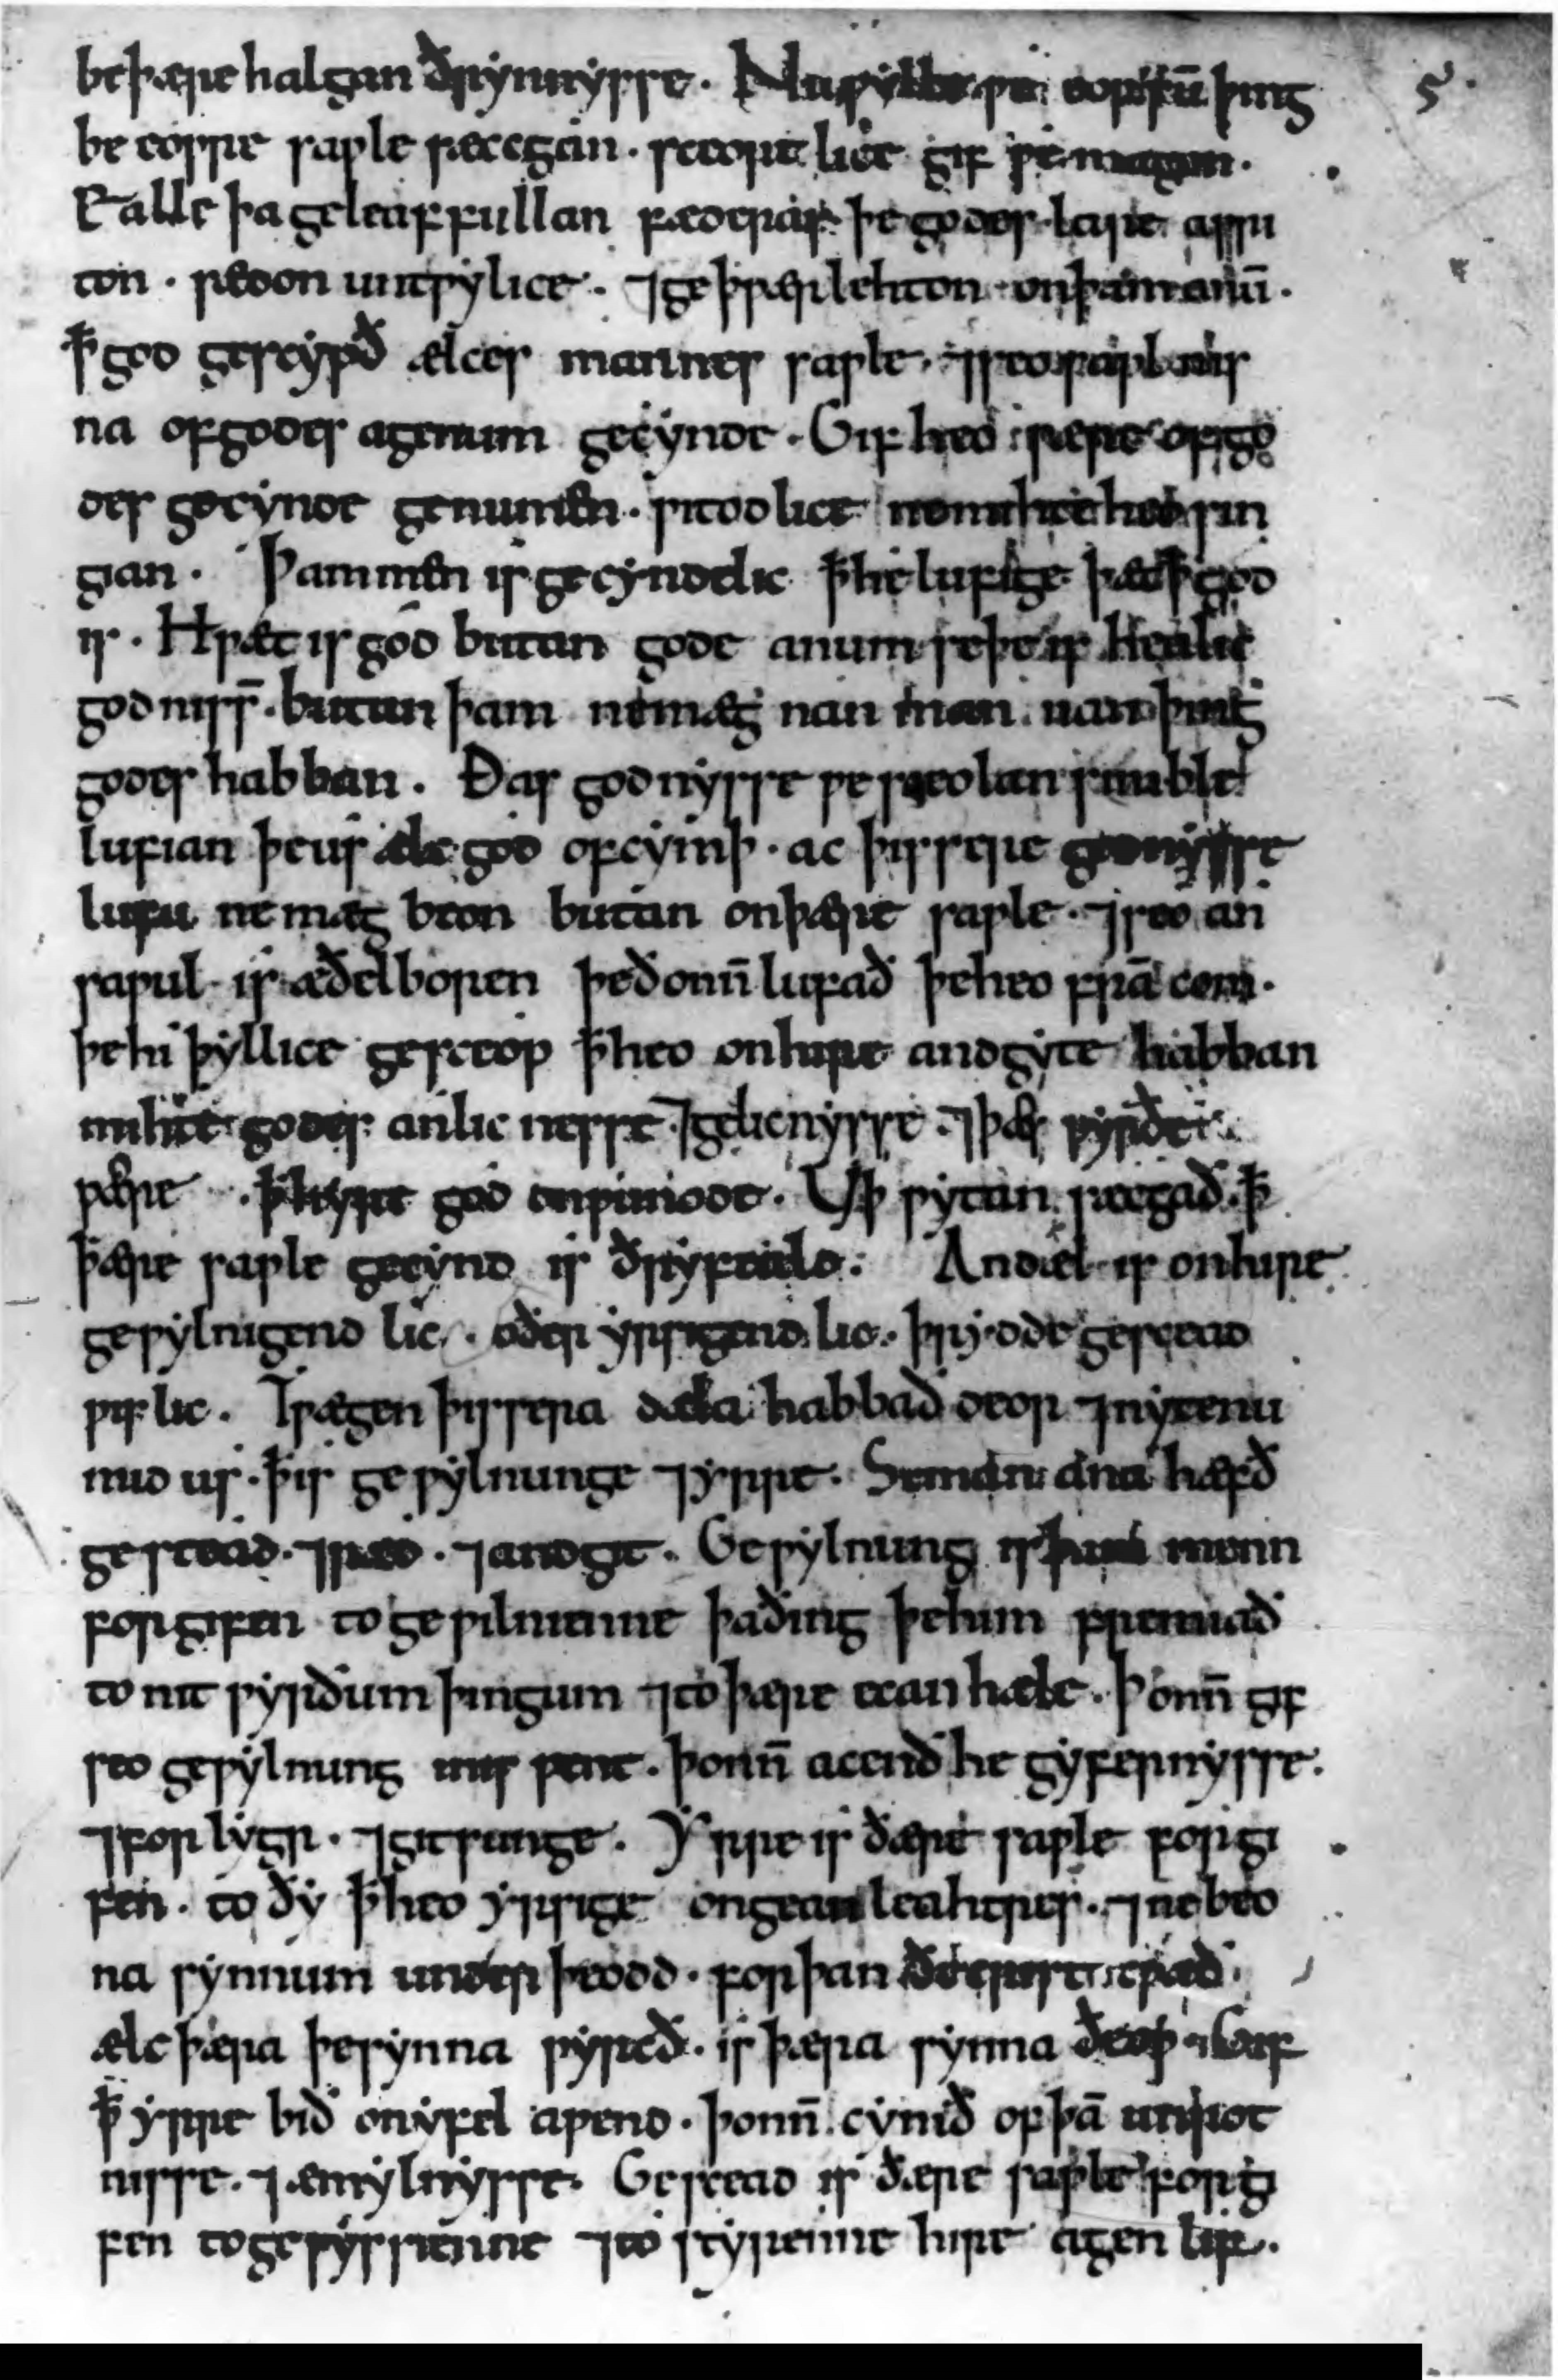 beþære halgan ðrynnysse. Nu wylle we eop sū þing
be eowre sawle secgan. sceortlice gif we magon.
Ealle þa geleaffullan fæderas þe godes lare awri
ton. sædon untwylice. ⁊geþwærlehton onþam anū.
ꝥgod gescypð ælces mannes sawle. ⁊seo sawl nis
na ofgodes agenum gecynde. Gif heo wære ofgo
des gecynde genumen. witodlice nemihte heo sin
gian. Þammen is gecyndelic ꝥhe lufige þæt ꝥgod
is. Hwæt is god butan gode anum seþe is healic
godniss̄. butan þam nemæg nan man nan þing
godes habban. Ðas godnysse we sceolan simble
lufian þe us ælc god ofcymþ. ac þissere godnysse
lufu nemæg beon butan onþære sawle. ⁊seo an
sawul is æðelboren þeðonn̄ lufað þeheo frā com.
þehi þyllice gesceop ꝥheo onhire andgyte habban
mihte godes anlicnesse ⁊gelicnysse. ⁊þæs wyrðe
wære. ꝥhyre god onwunode. Uþwytan secgað. ꝥ
þære sawle gecynd is ðryfeald. An dæl is onhire
gewylnigendlic. oðer yrsigendlic. þrydde gescead
wislic. Twægen þissera dæla habbað deor ⁊nytenu
mid us. þis gewylnunge ⁊yrre. Seman ana hæfð
gescead. ⁊ræd. ⁊andgit. Gewylnung is þam menn
forgifen to gewilnienne þaðing þehim fremiað
to nit wyrðum þingum ⁊to þære ecan hæle. Þonn̄ gif
seo gewylnung mis went. þonn̄ acenð he gyfernysse.
⁊forlygr. ⁊gitsunge. Yrre is ðære sawle forgi
fen. to ðy ꝥheo yrsige ongean leahtres. ⁊nebeo
na synnum underþeodd. forþan ðe crist cwæð.
ælc þæra þesynna wyrcð. is þæra synna ðeow. Gif
ꝥ yrre bið onyfel awend. þonn̄ cymð ofþā unrot
nisse. ⁊æmylnysse. Gescead is ðære sawle forgi
fen to gewyssienne ⁊to styrenne hire agen lif.